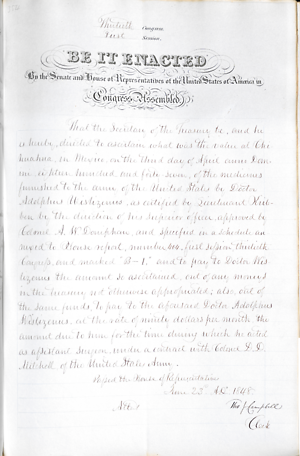 Thirtieth Congress
First Session
BE IT ENACTED
By the Senate and House of Representatives of the United States of America in
Congress Assembled,
That the Secretary of the Treasury be, and he
is hereby, directed to ascertain what was the value at Chi
huahua, in Mexico, on the third day of April anno Dom
ini eighteen hundred and forty seven, of the medicines
furnished to the army of the United States by Doctor
Adolphus Wislizenus, as certified by Lieutenant
by the direction of his superior officer, approved by
Colonel A. W. Doniphan, and specified in a schedule an
nexed to House report, number first session thirtieth
Congress, and marked "B-1," and to pay to Doctor Wis
lizenus the amount so ascertained, out of any money
in the treasury not otherwise appropriated; also, out of
the same funds, to pay to the aforesaid Doctor Adolphus
Wislizenus, at the rate of ninety dollars per month the
amount due to him for the time during which he acted
as assistant surgeon, under a contract with Colonel D. D.
Mitchell of the United States Army.
Passed the House of Representatives
June 23d AD 1848.
Tho J Campbell
Clerk